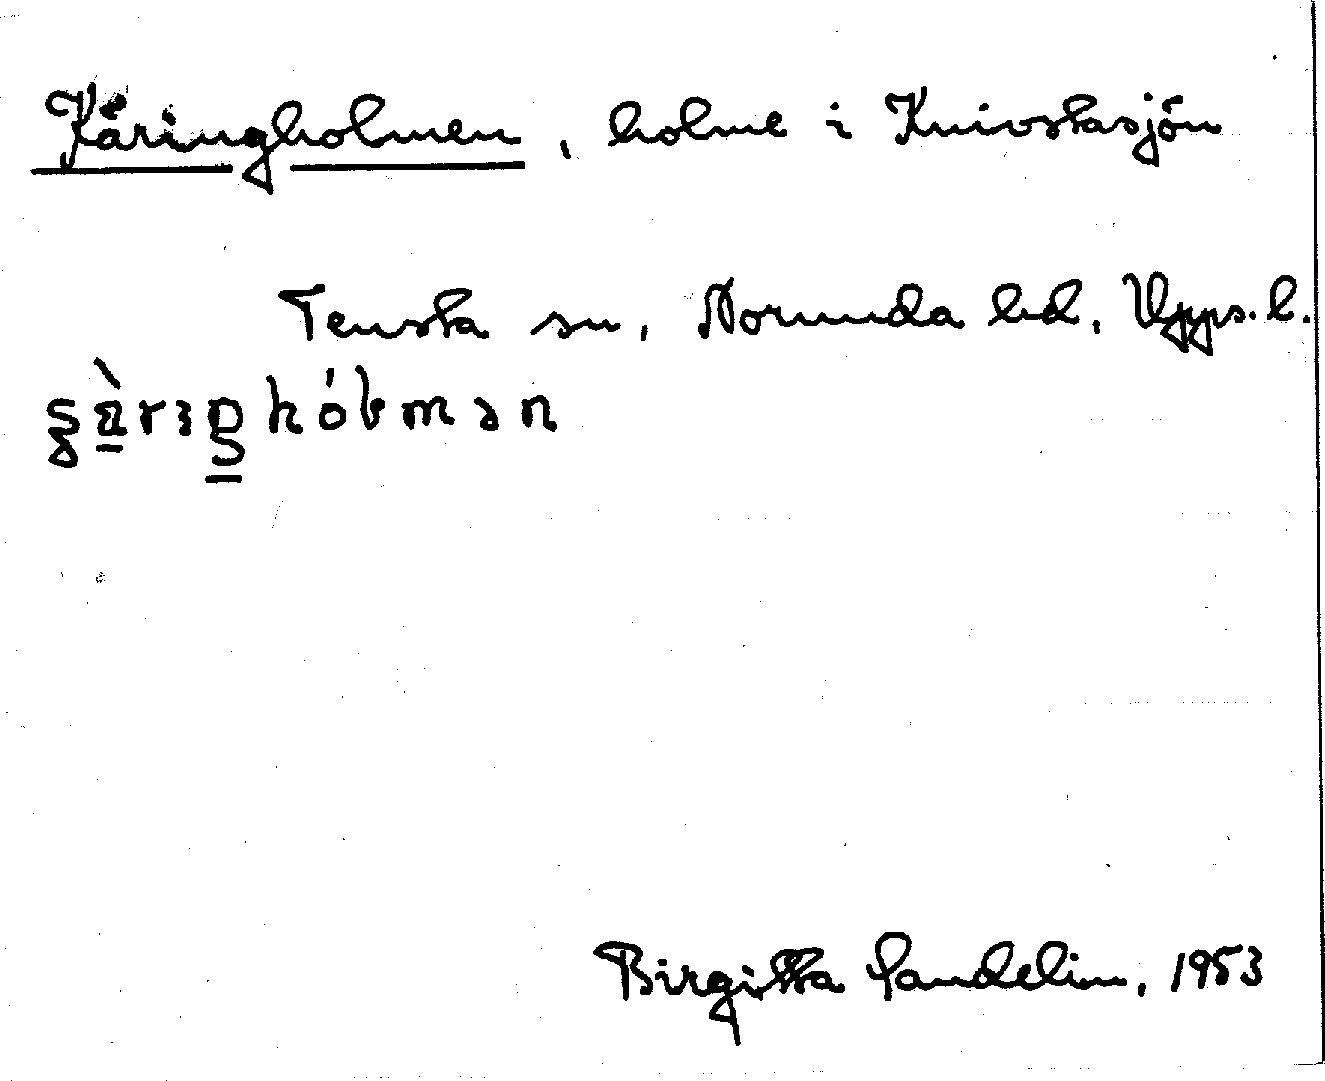 Käringholmen, holme i Knivstasjön
Tensta sn, Norunda hd, Upps. l.
Birgitta Sandelin, 1953